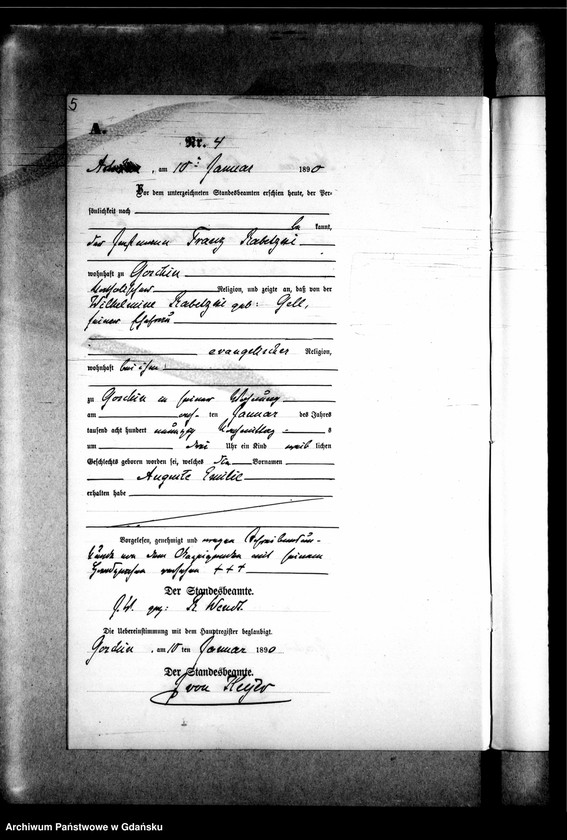 5
A.
Nr. 4
am 10ten Januar 1890
Vor dem unterzeichneten Standesbeamten erschien heute, der Per-
sönlichkeit nach
kannt,
der Franz
wohnhaft zu Gorchin
katholischer Religion, und zeigte an, daß von der
Wilhelmine geb: Gell,
seiner Ehefrau
evangelischer Religion,
wohnhaft bei ihm
zu Gorchin in seiner Wohnung
am ten Januar des Jahres
tausend acht hundert neunzig Nachmittags s
um drei Uhr ein Kind weib lichen
Geschlechts geboren worden sei, welches die Vornamen
Auguste Emilie
erhalten habe
Vorgelesen, genehmigt und wegen Schreibensun-
kunde von dem mit seinem
Handzeichen versehen +++
Der Standesbeamte.
gez: R. Wendt.
Die Uebereinstimmung mit dem Hauptregister beglaubigt.
Gorchin, am 10 ten Januar 1890
Der Standesbeamte.
von
Archiwum Państwowe w Gdańsku